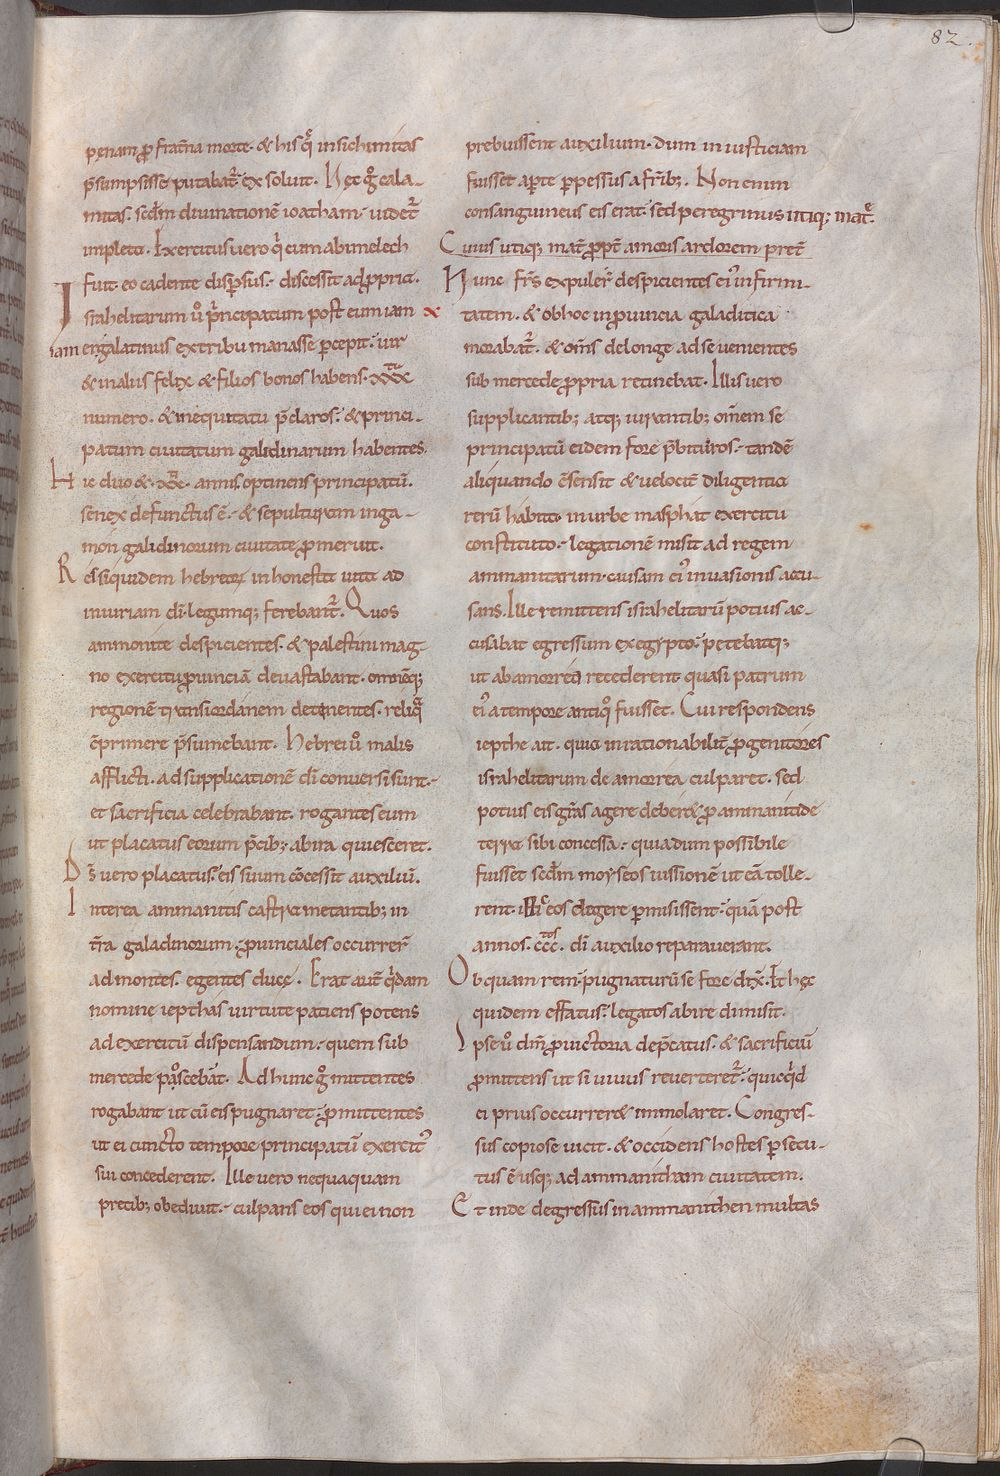 82.
penam ꝓ frat̄na morte· & his q̄ insichimitas
p̄sumpsisse putabat᷑· exsoluit. Hęc g̊ cala-
mitas. scd̄m diuinationē ioatham· uidet᷑
impleta. Exercitus uero q̇ cum abimelech
fuit· eo cadente disp̄sus· discessit ad ꝓpria.
Israhelitarum u̇ p̄ncipatum post eum iam
iam engalatinus ex tribu manasse ꝑcepit· uir
& in aliis felix & filios bonos habens· xxx
numero. & in equitatu p̄claros· & princi-
patum ciuitatum galidinarum habentes.
Hic duo & xx annis optinens principatū.
senex defunctus ē· & sepulturam in ga-
mon galidinorum ciuitate ꝓmeruit.
Res siquidem hebreoꝝ inhonesta uita ad
iniuriam dī· legumq; ferebant᷑. Quos
ammonite despicientes· & palestini mag
no exercitu ꝓuinciā deuastabant. omnēq;
regionē transiordanem detinentes· reliq̄
cōprimere p̄sumebant. Hebrei u̇ malis
afflicti· ad supplicationē dī conuersi sunt·
et sacrificia celebrabant· rogantes eum
ut placatus eorum p̄cib; ab ira quiesceret.
Ds̄ uero placatus· eis suum cōcessit auxiliū.
Interea ammanitis castra metantib; in
t̄ra galadinorum· ꝓuinciales occurrer̄
ad montes· egentes ducę. Erat aut̄ q̇dam
nomine iepthas uirtute paciens potens
ad exercitū dispensandum· quem sub
mercede pascebat. Ad hunc g̊ mittentes
rogabant ut cū eis pugnaret· ꝓmittentes
ut ei cuncto tempore principatū exercit᷒
sui concederent. Ille uero nequaquam
precib; obediuit· culpans eos qui ei non
prebuissent auxilium· dum iniusticiam
fuisset aꝑte ꝑpessus a fr̄ib;. Non enim
consanguineus eis erat· sed peregrinus utiq; mat̄.
Cuius utiq; mat̄ ꝓpt̄ amoris ardorem pret̄
Hunc fr̄s expuler̄ despicientes ei᷒ infirmi-
tatem· & ob hoc in ꝓuincia galaditica
morabat᷑· & om̄s de longe ad se uenientes
sub mercede ꝓpria retinebat. Illis uero
supplicantib; atq; iurantib; om̄em se
principatū eidem fore p̄bituros· tandē
aliquando cōsensit & uelocit̄ diligentia
rerū habita· in urbe masphat exercitu
constituto· legationē misit ad regem
ammanitarum· causam ei᷒ inuasionis accu-
sans. Ille remittens israhelitarū potius ac-
cusabat egressum ex egypto· petebatq;
ut ab amorrea recederent quasi patrum
ei᷒ a tempore antiq̊ fuisset. Cui respondens
iepthe ait· quia inrationabilit̄ ꝓgenitores
israhelitarum de amorrea culparet· sed
potius eis grās agere deberet ꝓ ammanitide
terra sibi concessa· quia dum possibile
fuisset scd̄m moyseos iussionē ut eā tolle-
rent· eos degere ꝑmisissent· quā post
annos· ccc· dī auxilio reparauerant.
Ob quam rem· pugnaturū se fore dix̄. Et hęc
quidem effatus· legatos abire dimisit.
Ipse u̇ dn̄m ꝓ uictoria dep̄catus· & sacrificiū
ꝓmittens ut si uiuus reuerteret᷑· quicq̇d
ei prius occurreret immolaret. Congres-
sus copiose uicit· & occidens hostes ꝑsecu-
tus ē usq; ad ammanitham ciuitatem.
Et inde degressus in ammanithen multas